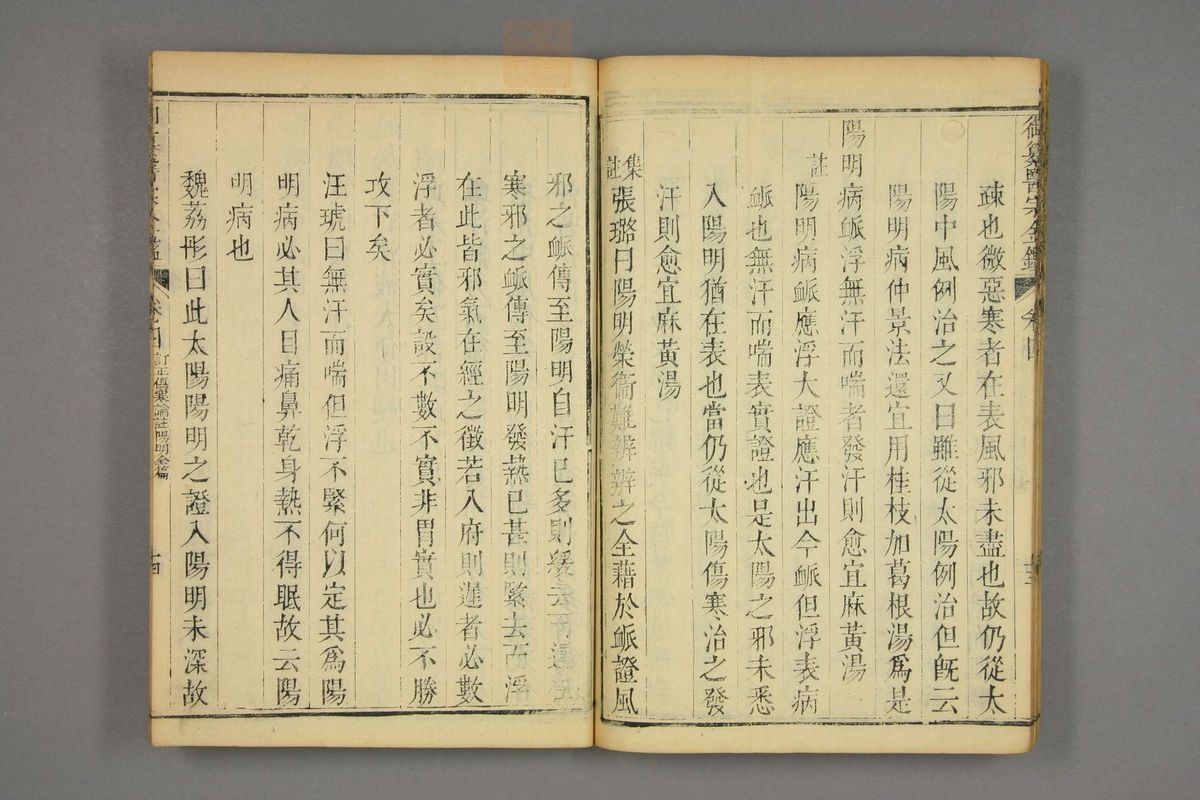 御纂醫宗金鑑 卷四 十三
疎也微惡寒者在表風邪未盡也故仍從太
陽中風例治之又曰雖從太陽例治但旣云
陽明病仲景法還宜用桂枝加葛根湯爲是
陽明病脈浮無汗而喘者發汗則愈宜麻黃湯
註 陽明病脈應浮大證應汗出今脈但浮表病
脈也無汗而喘表實證也是太陽之邪未悉
入陽明猶在表也當仍從太陽傷寒治之發
汗則愈宜麻黃湯
集註 張璐曰陽明榮衞難辨辨之全藉於脈證風
邪之脈傳至陽明自汗已多則緩去而
寒邪之脈傳至陽明發熱已甚則緊去而浮
在此皆邪氣在經之徵若入府則遲者必數
浮者必實矣設不數不實非胃實也必不勝
攻下矣
汪琥曰無汗而喘但浮不緊何以定其爲陽
明病必其人目痛鼻乾身熱不得眠故云陽
明病也
魏荔彤曰此太陽陽明之證入陽明未深故
卷四 訂正傷寒論註陽明全篇 十四